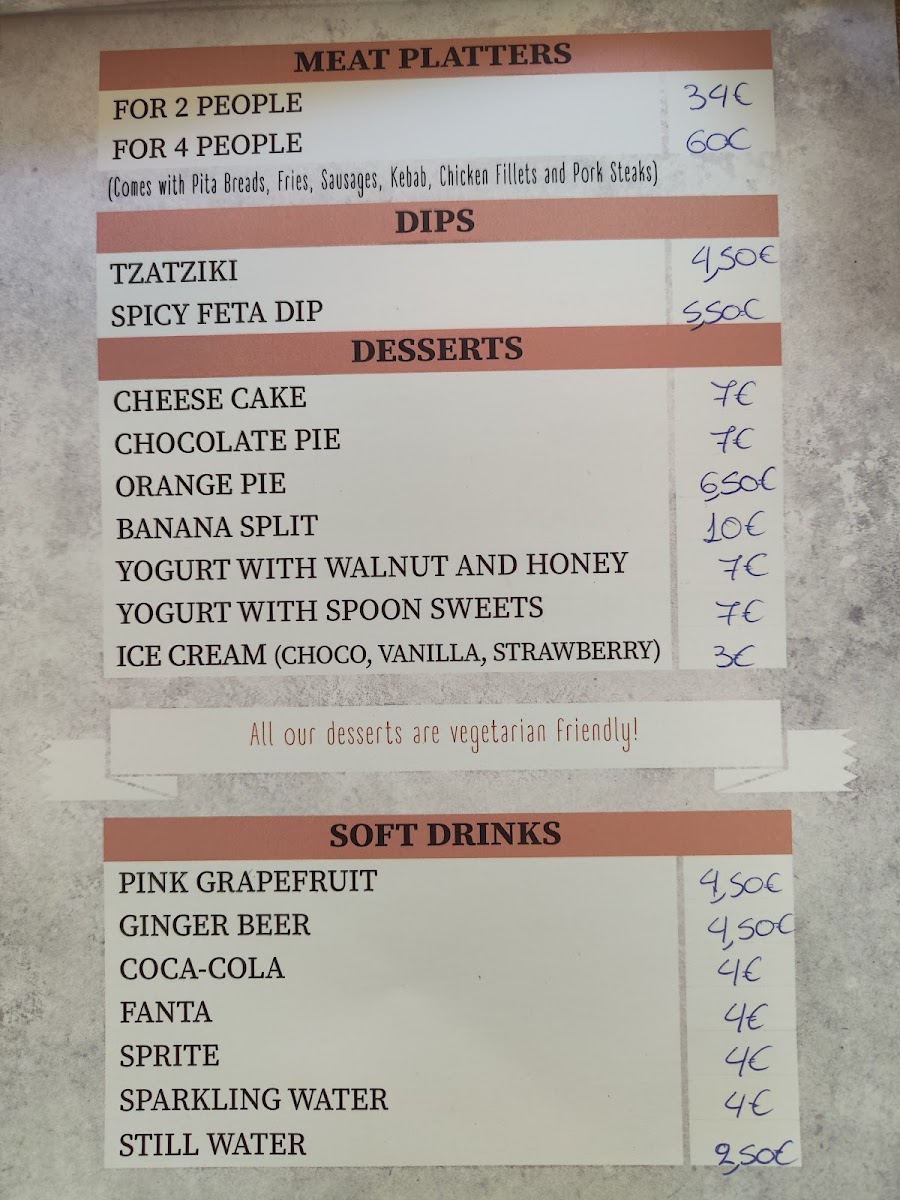 MEAT PLATTERS
FOR 2 PEOPLE 34€
FOR 4 PEOPLE 60€
(Comes with Pita Breads, Fries, Sausages, Kebab, Chicken Fillets and Pork Steaks)
DIPS
TZATZIKI 4,50€
SPICY FETA DIP 5,50€
DESSERTS
CHEESE CAKE 7€
CHOCOLATE PIE 7€
ORANGE PIE 6,50€
BANANA SPLIT 10€
YOGURT WITH WALNUT AND HONEY 7€
YOGURT WITH SPOON SWEETS 7€
ICE CREAM (CHOCO, VANILLA, STRAWBERRY) 3€
All our desserts are vegetarian friendly!
SOFT DRINKS
PINK GRAPEFRUIT 4,50€
GINGER BEER 4,50€
COCA-COLA 4€
FANTA 4€
SPRITE 4€
SPARKLING WATER 4€
STILL WATER 2,50€